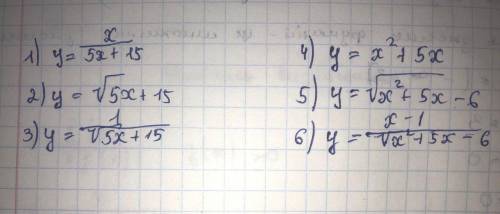 1) y = x / 5x + 15
2) y = √5x + 15
3) y = 1 / √5x + 15
4) y = x² + 5x
5) y = √x² + 5x - 6
6) y = x - 1 / √x² + 5x - 6